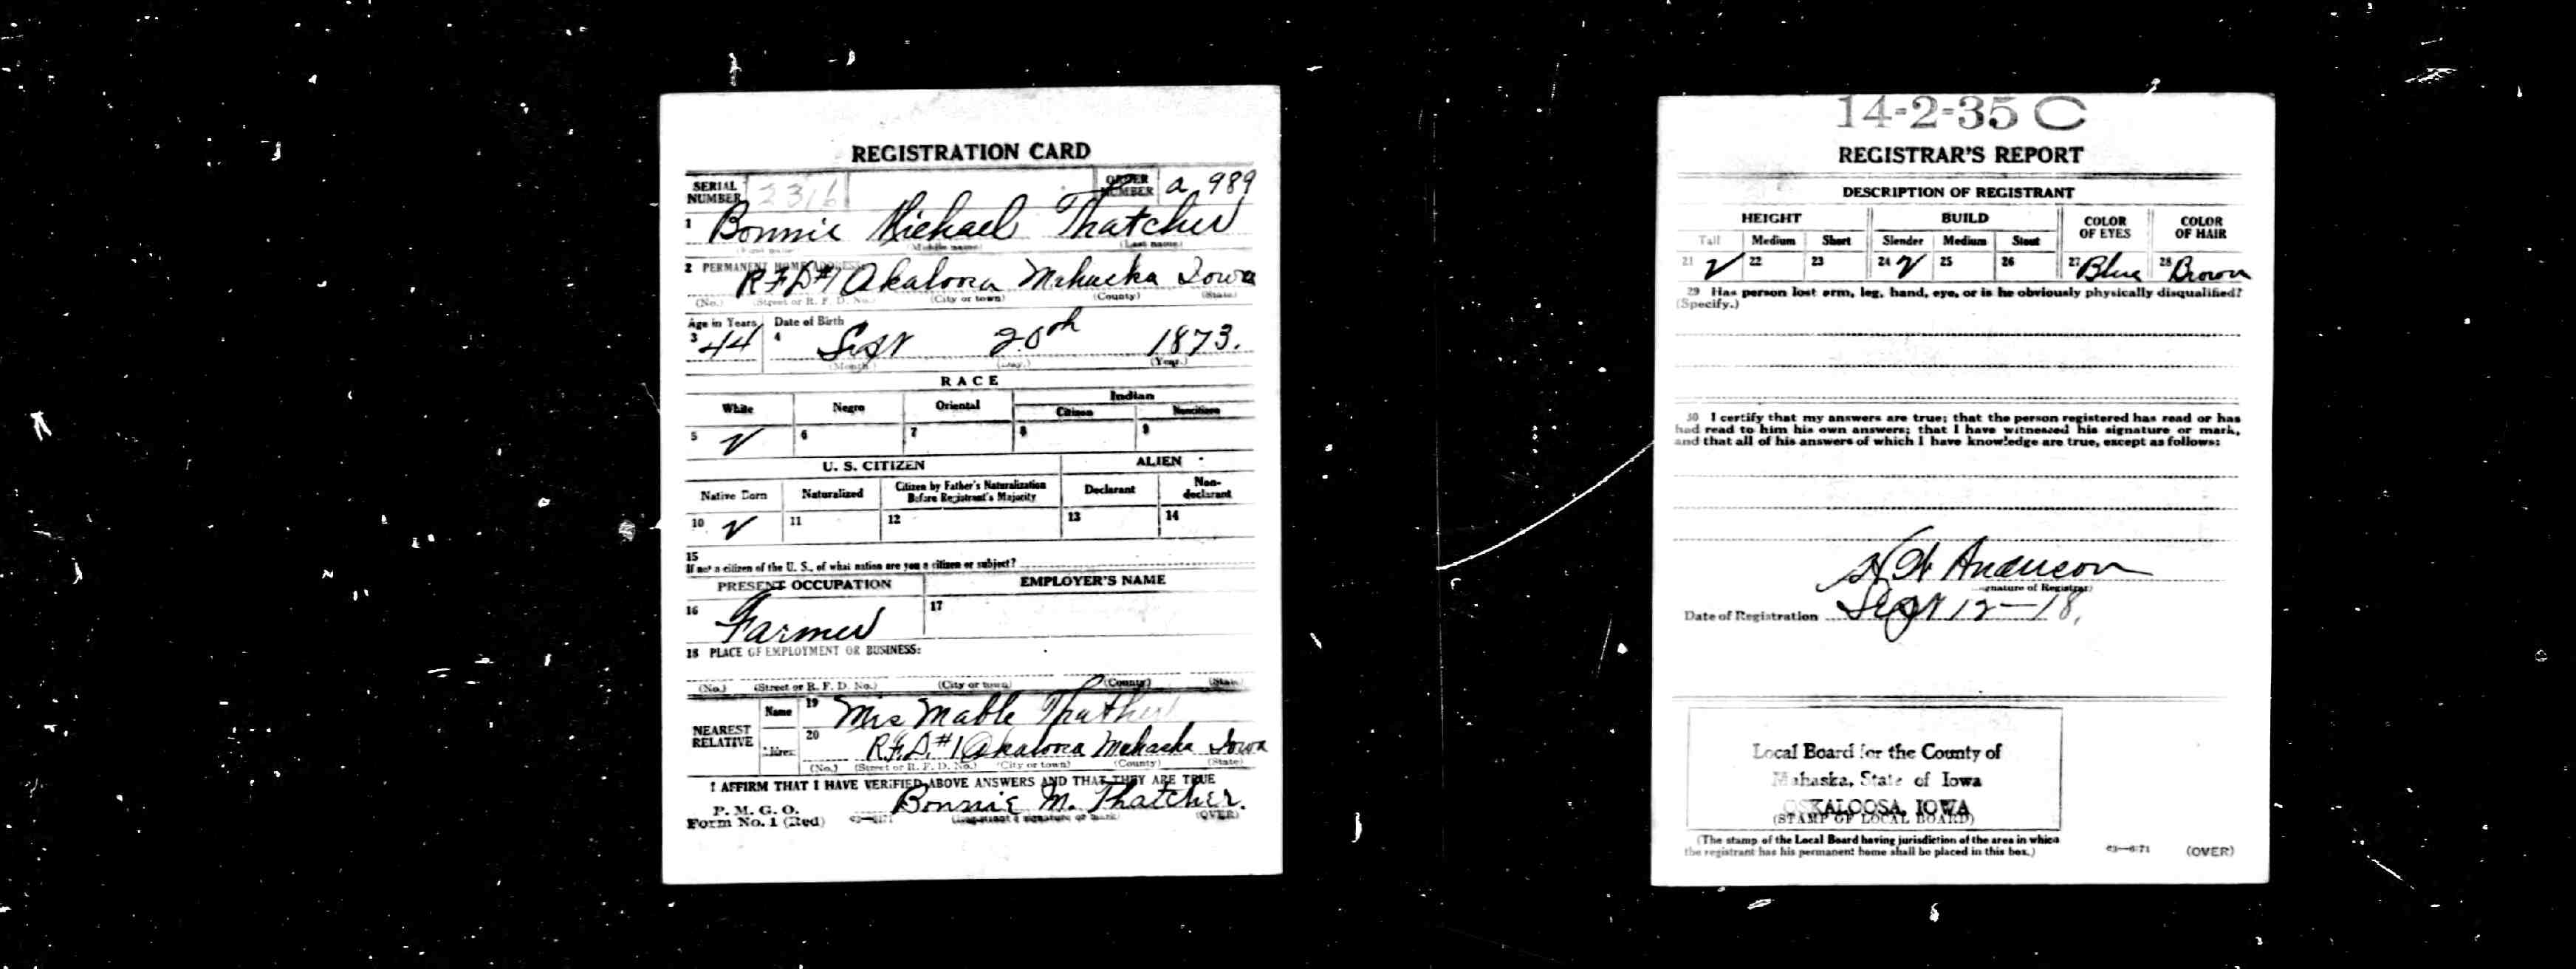 REGISTRATION CARD
SERIAL NUMBER 2316 ORDER NUMBER a 989
1 Bonnie Michael Thatcher
(Middle name) (Last name)
2 PERMANENT HOME ADDRESS:
RFD#1 Okaloosa Mahaska Iowa
(No.) (Street or R. F. D. No.) (City or town) (County) (State)
Age in Years Date of Birth
3 44 4 Sept 20th 1873.
(Month) (Day.) (Year.)
RACE
White Negro Oriental Indian
Citizen Noncitizen
5 V 6 7 8 9
U. S. CITIZEN ALIEN
Native Born Naturalized Citizen by Father's Naturalization Before Registrant's Majority Declarant Non-declarant
10 V 11 12 13 14
15
If not a citizen of the U. S., of what nation are you a citizen or subject?
PRESENT OCCUPATION EMPLOYER'S NAME
16 Farmer 17
18 PLACE OF EMPLOYMENT OR BUSINESS:
(No.) (Street or R. F. D. No.) (City or town) (County) (State)
NEAREST RELATIVE Name 19 Mrs Mable Thatcher
Address 20 R.F.D #1 Okaloosa Mahaska Iowa
(No.) (Street or R. F. D. No.) (City or town) (County) (State)
I AFFIRM THAT I HAVE VERIFIED ABOVE ANSWERS AND THAT THEY ARE TRUE
P. M. G. O.
Form No. 1 (Red) Bonnie M. Thatcher.
(Registrant's signature or mark) (OVER)
14-2-35 C
REGISTRAR'S REPORT
DESCRIPTION OF REGISTRANT
HEIGHT BUILD COLOR OF EYES COLOR OF HAIR
Tall Medium Short Slender Medium Stout
21 V 22 23 24 V 25 26 27 Blue 28 Brown
29 Has person lost arm, leg, hand, eye, or is he obviously physically disqualified?
(Specify.)
30 I certify that my answers are true; that the person registered has read or has
had read to him his own answers; that I have witnessed his signature or mark,
and that all of his answers of which I have knowledge are true, except as follows:
Anderson
(Signature of Registrar)
Date of Registration Sept 12-18,
Local Board for the County of
Mahaska, State of Iowa
OSKALOOSA, IOWA
(STAMP OF LOCAL BOARD)
(The stamp of the Local Board having jurisdiction of the area in which
the registrant has his permanent home shall be placed in this box.)
(OVER)